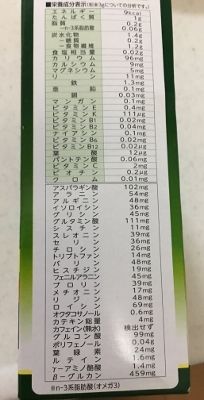 ■栄養成分表示(粉末3gについての分析です。)
エネルギー 9kcal
たんぱく質 1g
脂質 0.2g
－n-3系脂肪酸 0.06g
炭水化物 1.4g
－糖質 0.2g
－食物繊維 1.2g
食塩相当量 0.02g
カリウム 96mg
カルシウム 9mg
マグネシウム 5mg
リン 11mg
鉄 1.3mg
亜鉛 0.1mg
銅 0.03mg
マンガン 0.1mg
ビタミンE 0.4mg
ビタミンK 111μg
ビタミンB1 0.02mg
ビタミンB2 0.04mg
ナイアシン 0.1mg
ビタミンB6 0.02mg
ビタミンB12 0.02μg
葉酸 12μg
パントテン酸 0.06mg
ビタミンC 2mg
ビオチン 0.2μg
クロム 0.01mg
アスパラギン酸 102mg
アラニン 54mg
アルギニン 48mg
イソロイシン 36mg
グリシン 45mg
グルタミン酸 111mg
シスチン 11mg
スレオニン 39mg
セリン 36mg
チロシン 26mg
トリプトファン 14mg
バリン 48mg
ヒスチジン 19mg
フェニルアラニン 45mg
プロリン 39mg
メチオニン 17mg
リジン 48mg
ロイシン 69mg
オクタコサノール 0.6mg
カテキン総量 4mg
カフェイン(無水) 検出せず
グルコン酸 99mg
ポリフェノール 0.04g
葉緑素 24mg
ルテイン 1.6mg
γ-アミノ酪酸 1.4mg
β-グルカン 459mg
※n-3系脂肪酸(オメガ3)